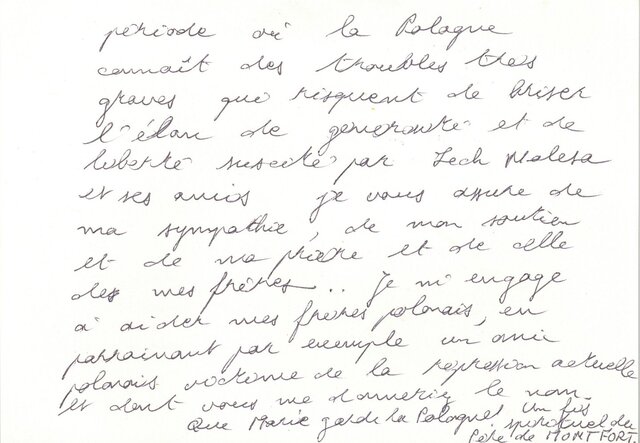 période où la Pologne
connaît des troubles très
graves qui risquent de briser
l'élan de générosité et de
liberté suscité par Lech Walesa
et ses amis je vous assure de
ma sympathie, de mon soutien
et de ma prière et de celle
des mes frères... Je m'engage
à aider mes frères polonais, en
parrainant par exemple un ami
polonais victime de la répression actuelle
et dont vous me donneriez le nom.
Que Marie garde la Pologne! Un fils
spirituel du
Père de MONTFORT